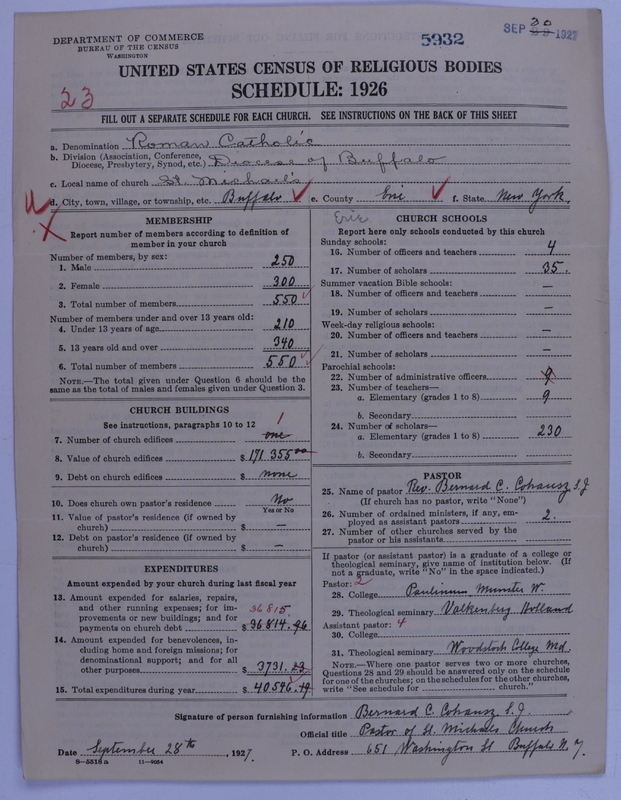 DEPARTMENT OF COMMERCE
BUREAU OF THE CENSUS
WASHINGTON
5932
SEP 29 1927
30
UNITED STATES CENSUS OF RELIGIOUS BODIES
SCHEDULE: 1926
23
FILL OUT A SEPARATE SCHEDULE FOR EACH CHURCH. SEE INSTRUCTIONS ON THE BACK OF THIS SHEET
a. Denomination Roman Catholic
b. Division (Association, Conference, Diocese, Presbytery, Synod, etc.) Diocese of Buffalo
c. Local name of church St. Michael's
d. City, town, village, or township, etc. Buffalo e. County Erie f. State New York.
Erie
X
MEMBERSHIP
Report number of members according to definition of
member in your church
Number of members, by sex:
1. Male 250
2. Female 300
3. Total number of members 550
Number of members under and over 13 years old:
4. Under 13 years of age 210
5. 13 years old and over 340
6. Total number of members 550
NOTE.—The total given under Question 6 should be the
same as the total of males and females given under Question 3.
CHURCH BUILDINGS
See instructions, paragraphs 10 to 12
1
7. Number of church edifices one
8. Value of church edifices $ 171 355.00
9. Debt on church edifices $ none
10. Does church own pastor's residence No
Yes or No
11. Value of pastor's residence (if owned by
church) $ —
12. Debt on pastor's residence (if owned by
church) $ —
EXPENDITURES
Amount expended by your church during last fiscal year
13. Amount expended for salaries, repairs,
and other running expenses; for im-
provements or new buildings; and for
payments on church debt $ 36814.96
36815
14. Amount expended for benevolences, in-
cluding home and foreign missions; for
denominational support; and for all
other purposes $ 3731.23
15. Total expenditures during year $ 40546.19
CHURCH SCHOOLS
Report here only schools conducted by this church
Sunday schools:
16. Number of officers and teachers 4
17. Number of scholars 35.
Summer vacation Bible schools:
18. Number of officers and teachers —
19. Number of scholars —
Week-day religious schools:
20. Number of officers and teachers —
21. Number of scholars —
Parochial schools:
22. Number of administrative officers 9
23. Number of teachers—
a. Elementary (grades 1 to 8) 9
b. Secondary
24. Number of scholars—
a. Elementary (grades 1 to 8) 230
b. Secondary
PASTOR
25. Name of pastor Rev. Bernard C. Cohausz S.J
(If church has no pastor, write "None")
26. Number of ordained ministers, if any, em-
ployed as assistant pastors 2.
27. Number of other churches served by the
pastor or his assistants
If pastor (or assistant pastor) is a graduate of a college or
theological seminary, give name of institution below. (If
not a graduate, write "No" in the space indicated.)
Pastor: 2
28. College Paulinum Munster W.
29. Theological seminary Valkenberg Holland
Assistant pastor: 4
30. College
31. Theological seminary Woodstock College Md.
NOTE.—Where one pastor serves two or more churches,
Questions 28 and 29 should be answered only on the schedule
for one of the churches; on the schedules for the other churches,
write "See schedule for church."
Signature of person furnishing information Bernard C. Cohausz S.J.
Official title Pastor of St. Michaels Church
Date September 28th, 1927. P. O. Address 651 Washington St Buffalo N. Y.
8—5518a 11—9054